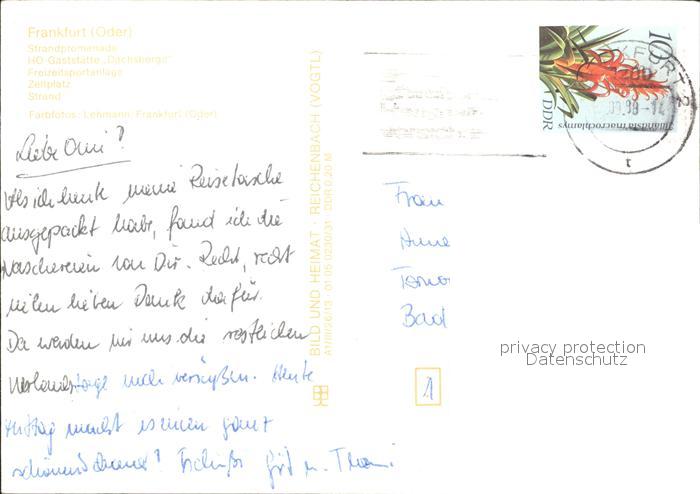 Frankfurt (Oder)
Strandpromenade
HO-Gaststätte „Dachsberge"
Freizeitsportanlage
Zeltplatz
Strand
Farbfotos: Lehmann, Frankfurt (Oder)
Liebe Omi!
Als ich heute meine Reisetasche
ausgepackt habe, fand ich die
Naschereien von Dir. Recht, recht
vielen lieben Dank dafür.
Da werden wir uns die restlichen
Urlaubstage noch versüßen. Heute
Mittag macht es einen ganz
schönen Tschüß
BILD UND HEIMAT · REICHENBACH (VOGTL)
A1/III/26/13 · 01 05 0230/31 · DDR 0,20 M
10
DDR
Tillandsia macrochlamys
Frau
Anna
Bad
1
privacy protection
Datenschutz